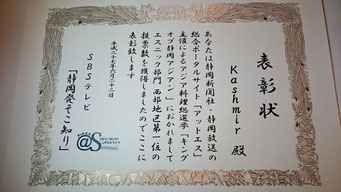 表彰状
Kashmir 殿
あなたは静岡新聞社・静岡放送の
総合ポータルサイト「アットエス」
主催によるアジア料理総選挙「キング
オブ静岡アジアン」におかれまして
エスニック部門 西部地区第一位の
投票数を獲得しましたのでここに
表彰致します
平成二十七年六月二十二日
SBSテレビ
「静岡発そこ知り」
@S